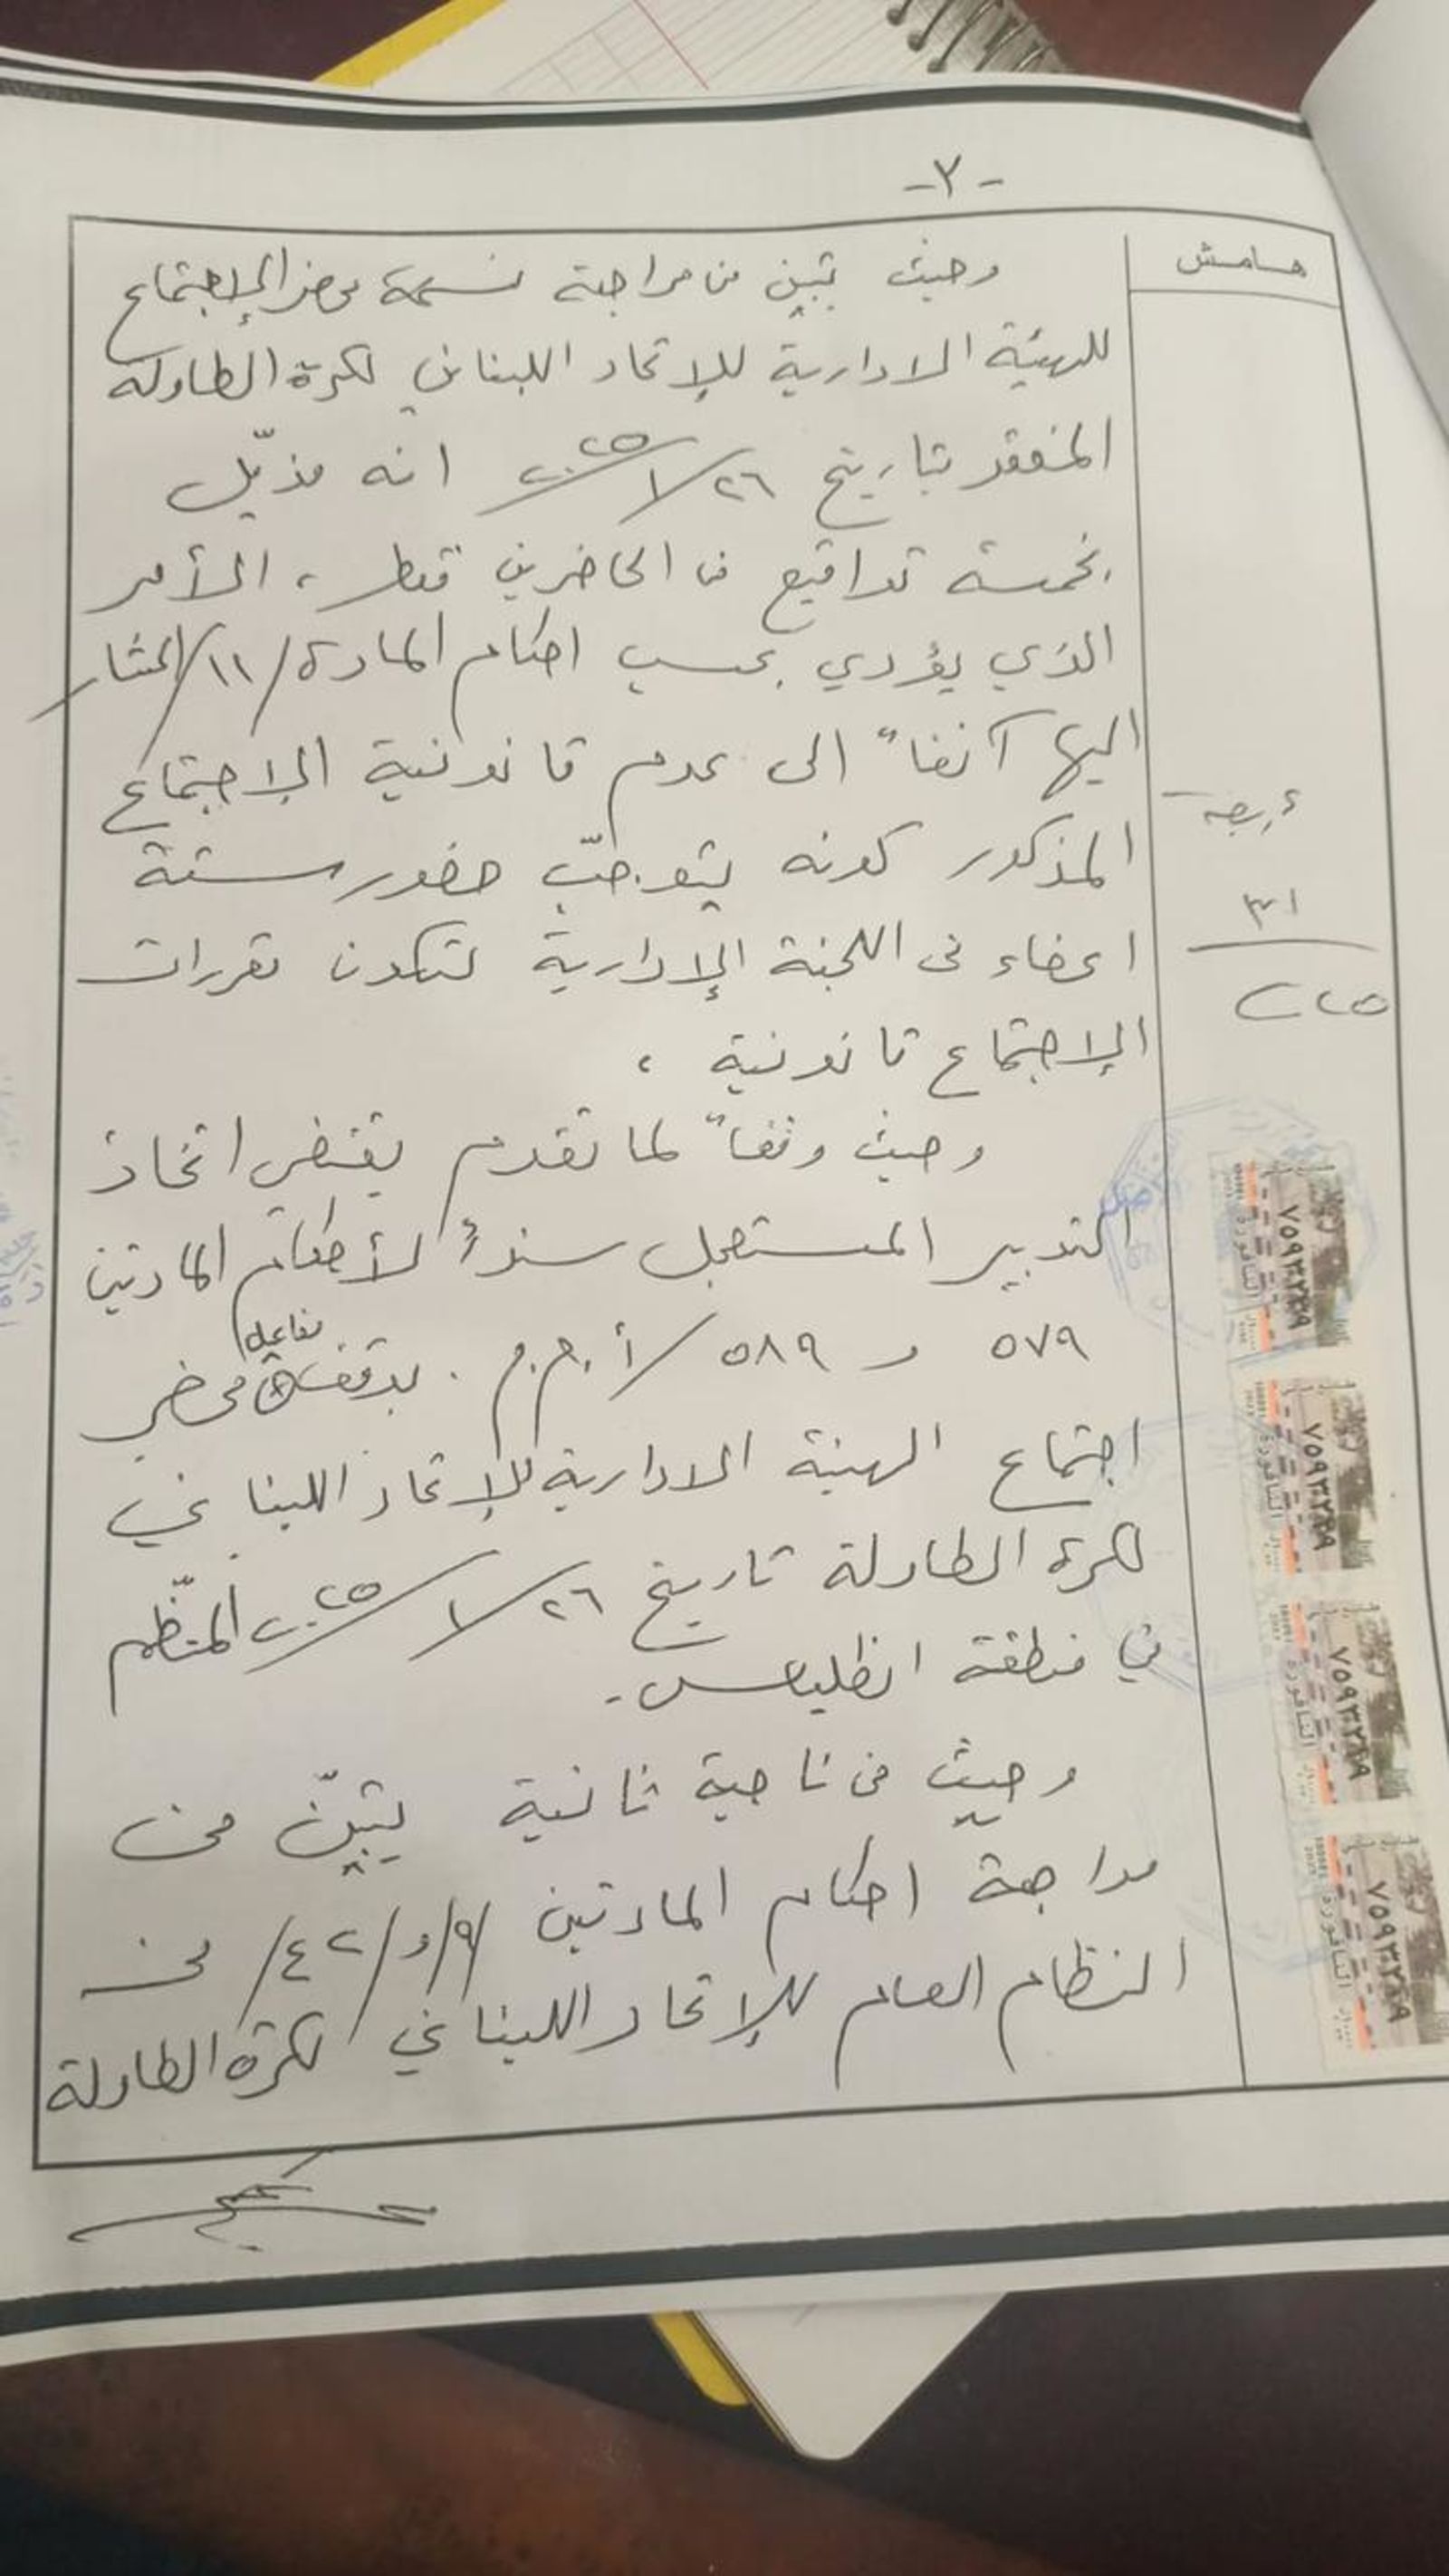 -٢-
هامش
وحيث تبين من مراجعة نسخة محضر الإجتماع
للهيئة الادارية للإتحاد اللبناني لكرة الطاولة
المنعقد بتاريخ ٢٦/١/٢٠٢٥ انه مذيّل
بخمسة تواقيع من الحاضرين فقط، الأمر
الذي يؤدي بحسب احكام المادة /١١/ المشار
اليها آنفاً الى عدم قانونية الإجتماع
المذكور كونه يتوجّب حضور ستة
اعضاء من اللجنة الإدارية لتكون مقررات
الإجتماع قانونية،
وحيث وفقاً لما تقدم يقتضي اتخاذ
التدبير المستعجل سنداً لأحكام المادتين
٥٧٩ و ٥٨٩/أ.م.م. بوقف مفاعيل محضر
اجتماع الهيئة الادارية للإتحاد اللبناني
لكرة الطاولة تاريخ ٢٦/١/٢٠٢٥ المنظّم
في منطقة انطلياس.
وحيث من ناحية ثانية يتبيّن من
مراجعة احكام المادتين /٩/ و /٤٢/ من
النظام العام للإتحاد اللبناني لكرة الطاولة